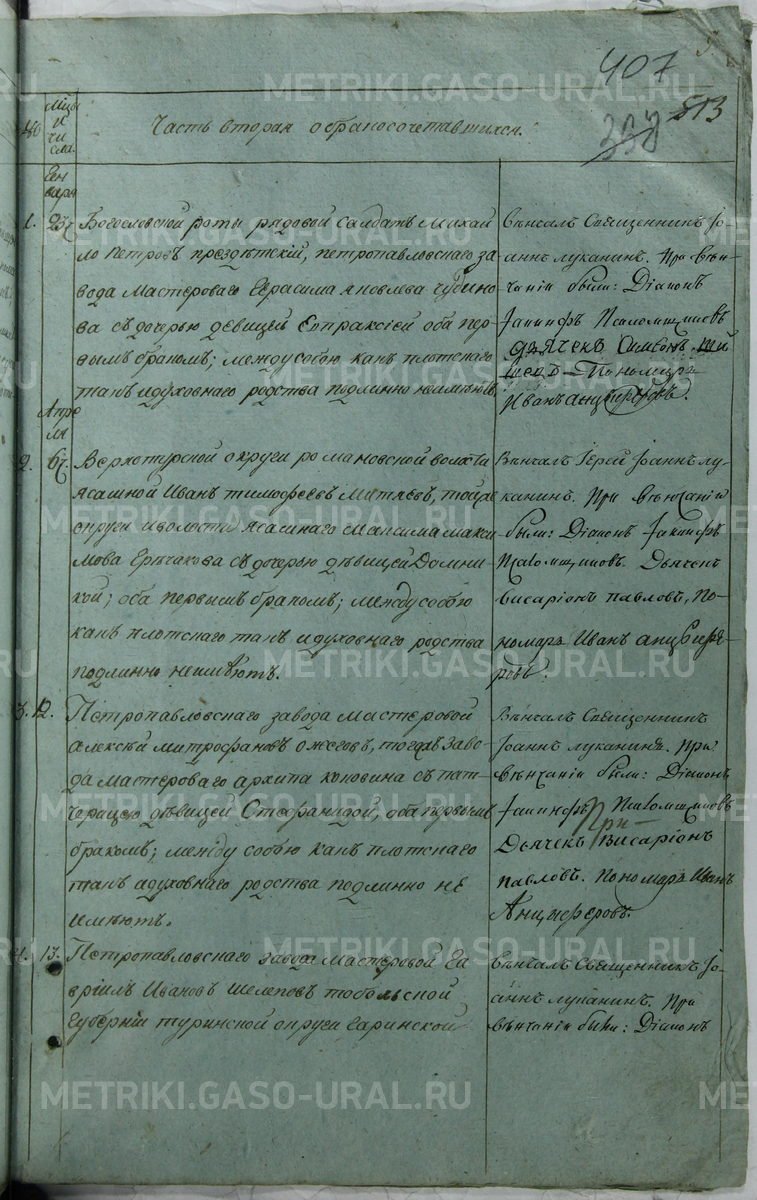 407
513
№
Мцы
и
чи
сла.
Часть вторая о бракосочетавшихся.
Ген
варя
1. 23. Богословской роты рядовой салдатъ Михай
ло Петровъ прездѣтскій, петропавловскаго за
вода Мастероваго Герасима яковлева чудино
ва съ дочерью девицей Евпраксіей оба пер
вымъ бракомъ; между собою какъ плотскаго
такъ и духовнаго родства подлинно неимѣютъ
Вѣнчалъ Священникъ Іо-
аннъ луканинъ. При вѣн-
чаніи были: Діаконъ
Іакинфъ Псаломщиковъ
дьячекъ Симеонъ
Пономарь
Иванъ анциферовъ.
Апре
ля
2. 6. Верхотурской округи романовской волости
ясашной Иванъ тимофеевъ Митяевъ, той же
округи и волости ясашнаго Максима макси
мова Ерычакова съ дочерью дѣвицей Домни
кой; оба первымъ бракомъ; между собою
какъ плотскаго такъ и духовнаго родства
подлинно неимѣютъ.
Вѣнчалъ Іерей Іоаннъ лу-
канинъ. При вѣнчаніи
были: Діаконъ Іакинфъ
Псаломщиковъ. Дьячекъ
висаріонъ павловъ, По-
номарь Иванъ анцифе-
ровъ.
3. 12. Петропавловскаго завода мастеровой
алексѣй митрофановъ ожеговъ, тогожъ заво-
да мастероваго архипа коновина съ пат-
черицею дѣвицей Стефанидой, оба первымъ
бракомъ; между собою какъ плотскаго
такъ и духовнаго родства подлинно не
имѣютъ.
Вѣнчалъ Священникъ
Іоаннъ луканинъ. При
вѣнчаніи были: Діаконъ
Іакинфъ Псаломщиковъ
При
Дьячекъ висаріонъ
павловъ. Пономарь Иванъ
Анциферовъ.
4. 13. Петропавловскаго завода Мастеровой Га
вріилъ Ивановъ шелеповъ тобольской
Губерніи туринской округи Гаринской
Вѣнчалъ Священникъ Іо-
аннъ луканинъ. При
вѣнчаніи были: Діаконъ
METRIKI.GASO-URAL.RU